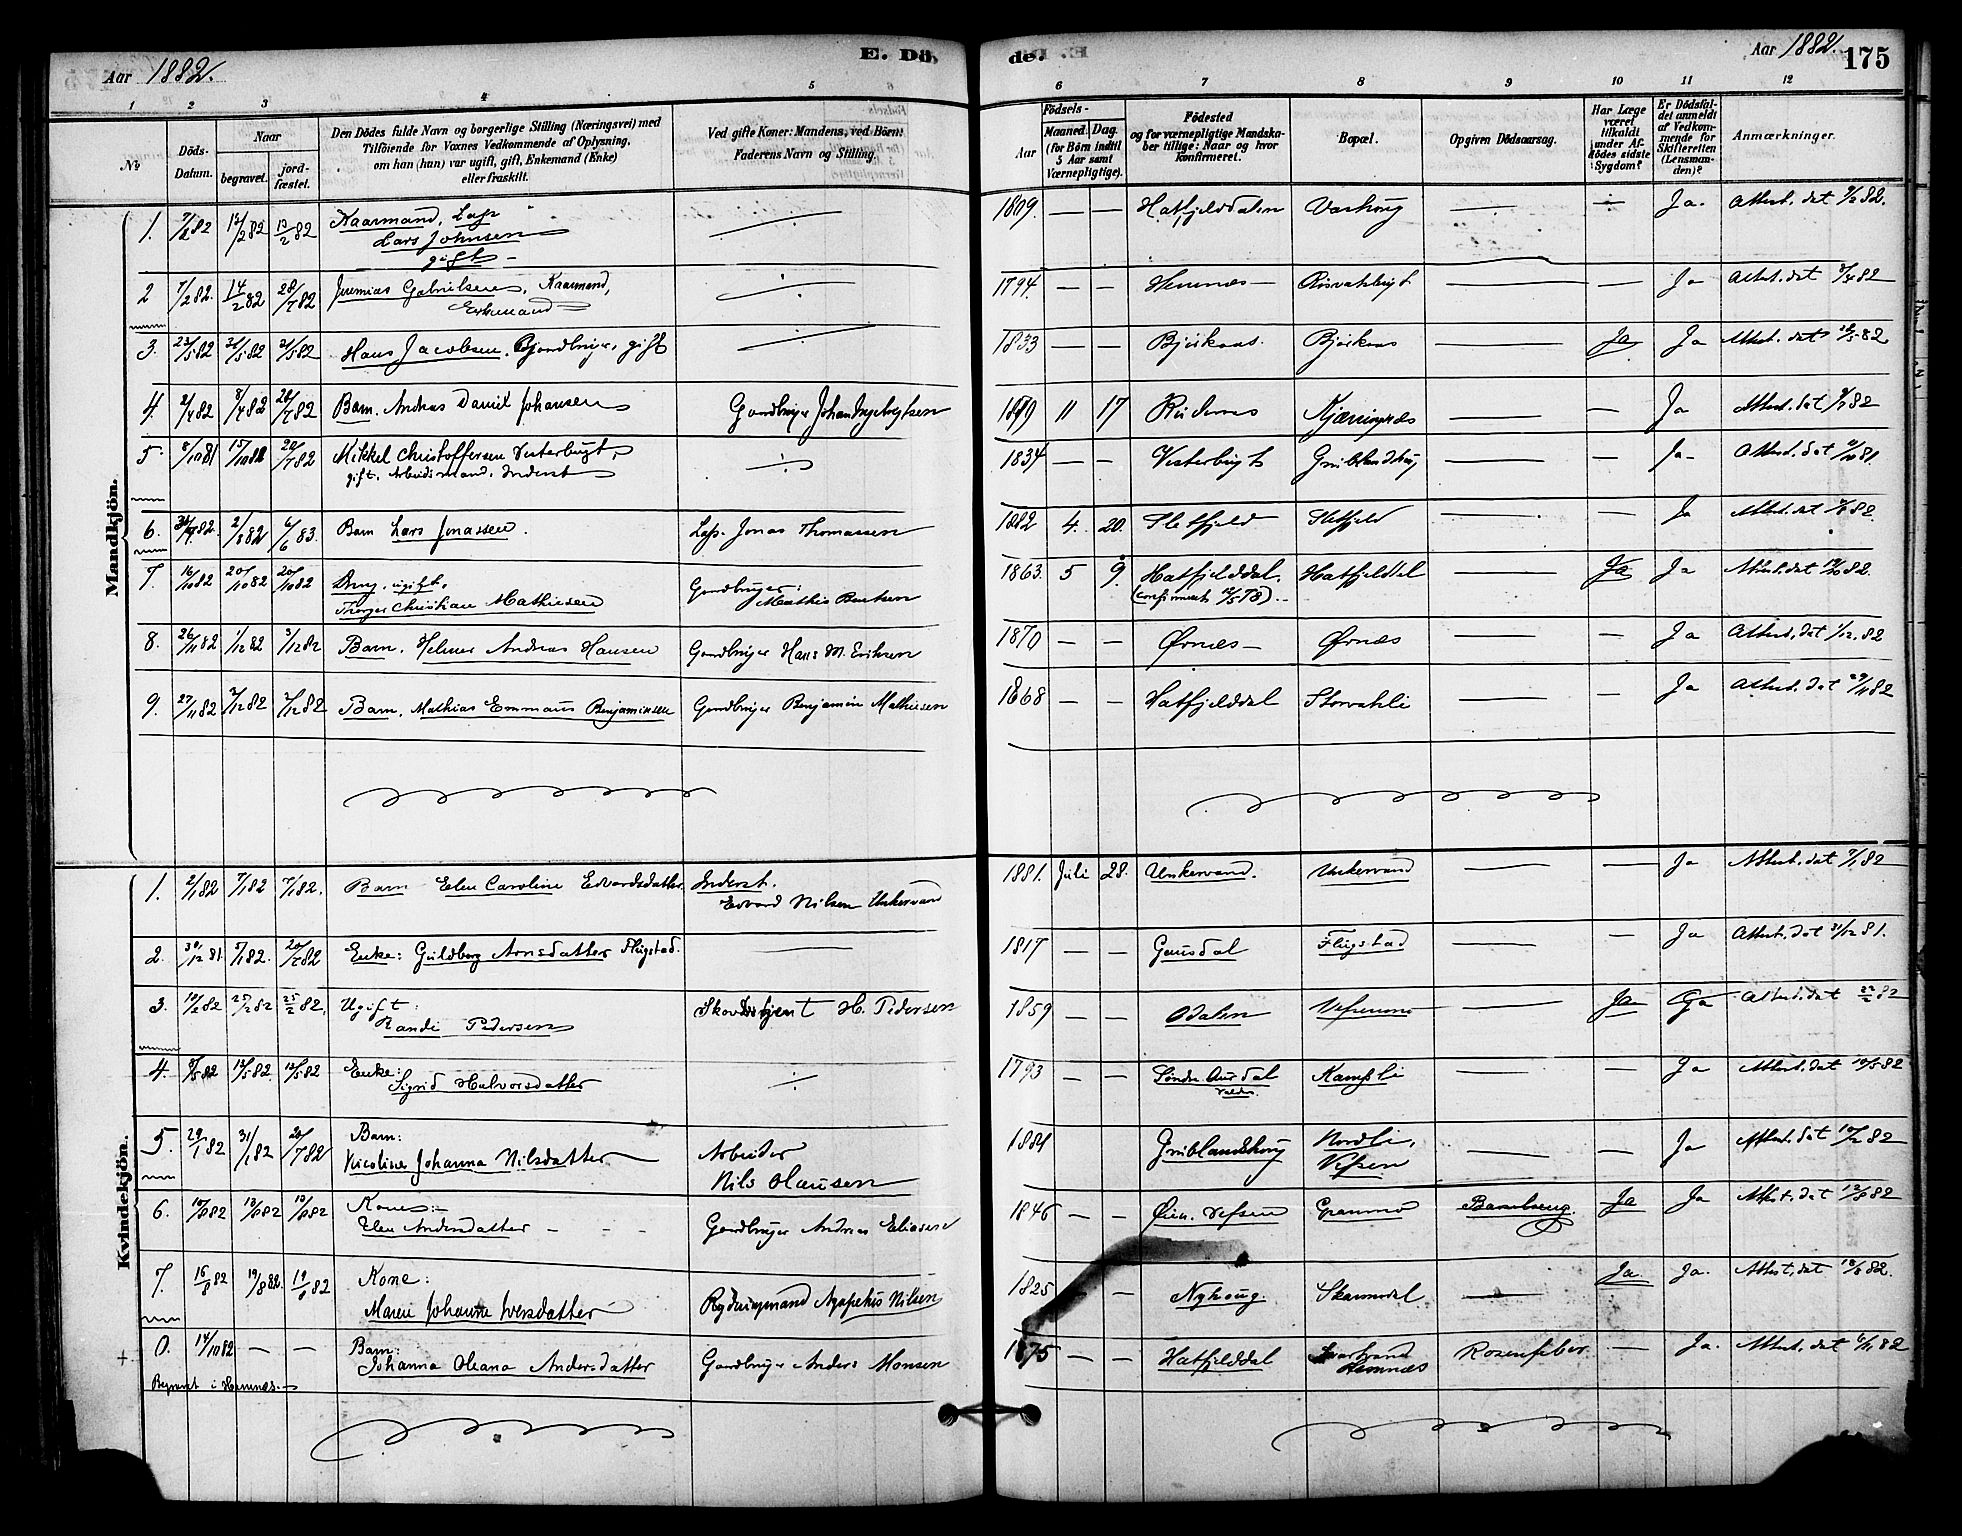 Aar 1882.
E. Dö- de.
Aar 1882. 175
1 2 3 4 5 6 7 8 9 10 11 12
No
Döds-Datum.
Naar
begravet.
jord-fæstet.
Den Dödes fulde Navn og borgerlige Stilling (Næringsvei) med
Tilföiende for Voxnes Vedkommende af Oplysning,
om han (hun) var ugift, gift, Enkemand (Enke)
eller fraskilt.
Ved gifte Koner: Mandens, ved Börn:
Faderens Navn og Stilling.
Födsels-
Aar
Maaned. Dag.
(for Börn indtil
5 Aar samt
Værnepligtige).
Födested
og for værnepligtige Mandska-
ber tillige: Naar og hvor
konfirmeret.
Bopæl.
Opgiven Dödsaarsag.
Har Læge
været
tilkaldt
under Af-
dödes sidste
Sygdom?
Er Dödsfal-
det anmeldt
af Vedkom-
mende for
Skifteretten
(Lensman-
den)?
Anmærkninger.
Mandkjön.
1. 7/2 82 13/2 82 13/2 82 Kaarmand, Lap Lars Johnsen gift 1809. — — Hatfjelddalen — Ja. Attest. dat 9/2 82.
2 7/2 82. 14/2 82 28/7 82 Jeremias Gabrielsen, Kaarmand, Enkemand 1794. — — Hemnæs — — — Ja Attest. dat 82
3. 23/5 82 31/5 82 31/5 82 Hans Jacobsen, Gjordbruger, gift 1833 — — — Ja Ja Attest. dat 28/5 82.
4. 2/4 82 8/4 82 28/7 82 Barn. Andreas Daniel Johansen Gaardbruger Johan 11 17 — — Ja Attest. dat 82
5. 8/10 81 15/10 81 20/7 82 Mikkel Christoffersen Vesterbugt, gift. Arbeidsmand. Inderst 1834 — — Vesterbugt — — Ja Attest. dat 81.
6. 82. 2/8 82 6/6 83. Barn Lars Jonassen. Lap. Jonas Thomassen 1882 4. 20. Sletfjeld Sletfjeld — — Ja Attest. dat 82.
7. 16/10 82 20/10 82 20/10 82 ugift, Christian Mathiesen Gaardbruger: Mathis Bentsen 1863. 5 9. Hatfjelddal. (confirmeret 78). Hatfjelddal Ja Ja Attest. dat 82.
8. 26/11 82 1/12 82 3/12 82 Barn. Helmer Andreas Hansen Gaardbruger Hans M. Eriksen 1870 — — Ørnæs — Ørnæs — — Ja Attest. dat 1/12. 82
9. 27/11 82 2/12 82 2/12 82 Barn. Mathias Emmaus Benjaminsen Gaardbruger Benjamin Mathiesen 1868 — — Hatfjelddal Storvatnli — — Ja Attest. dat 29/11 82
Kvindekjön.
1. 2/1 82 7/1 82 7/1 82. Barn Elen Caroline Edvardsdatter. Inderst. Edvard Nilsen Unkervand 1881. Juli 28. Unkervand. Unkervand — — Ja Attest. dat 7/1 82
2. 30/12 81. 5/1 82. 20/7 82 Enke: Guldborg Arnsdatter Flugstad. — 1817 — — Gausdal Flugstad — — Ja Attest. dat 31/12 81.
3. 10/2 82 25/2 82 25/2 82. Ugift: Randi Pedersen H. Pedersen 1859 — — Odalen — Ja Ja Attest. dat 22/2 82
4. 8/5 82 13/5 82. 13/5 82 Enke: Sigrid Halvorsdatter 1793 — — Söndre Aurdal Valders Kampli — — Ja Attest. dat 10/5 82
5. 29/1 82 31/1 82 20/7 82 Barn: Nicoline Johanna Nilsdatter Arbeider Nils Hansen Nordli, Vefsen — — Ja Attest. dat 10/2 82
6. 10/8 82 13/8 82 13/8 82 Kone: Elen Andersdatter — — — Gaardbruger Andreas Eliasen 1846 — — Øien. Vefsen Granmo Barselseng. Ja Ja Attest. dat 12/8 82
7. 16/8 82 19/8 82. 19/8 82 Kone: Maren Johanna Iversdatter Rydningsmand Agapetus Nilsen 1825 — Skarmodal — Ja. Ja. Attest. dat 18/8 82.
0. 14/10 82 — — Barn: Johanna Oleana Andersdatter Gaardbruger Anders Monsen 1875 — — Hatfjelddal Hemnæs Rosenfeber — Ja. Attest. dat 6/11 82
Begravet i Hemnæs.